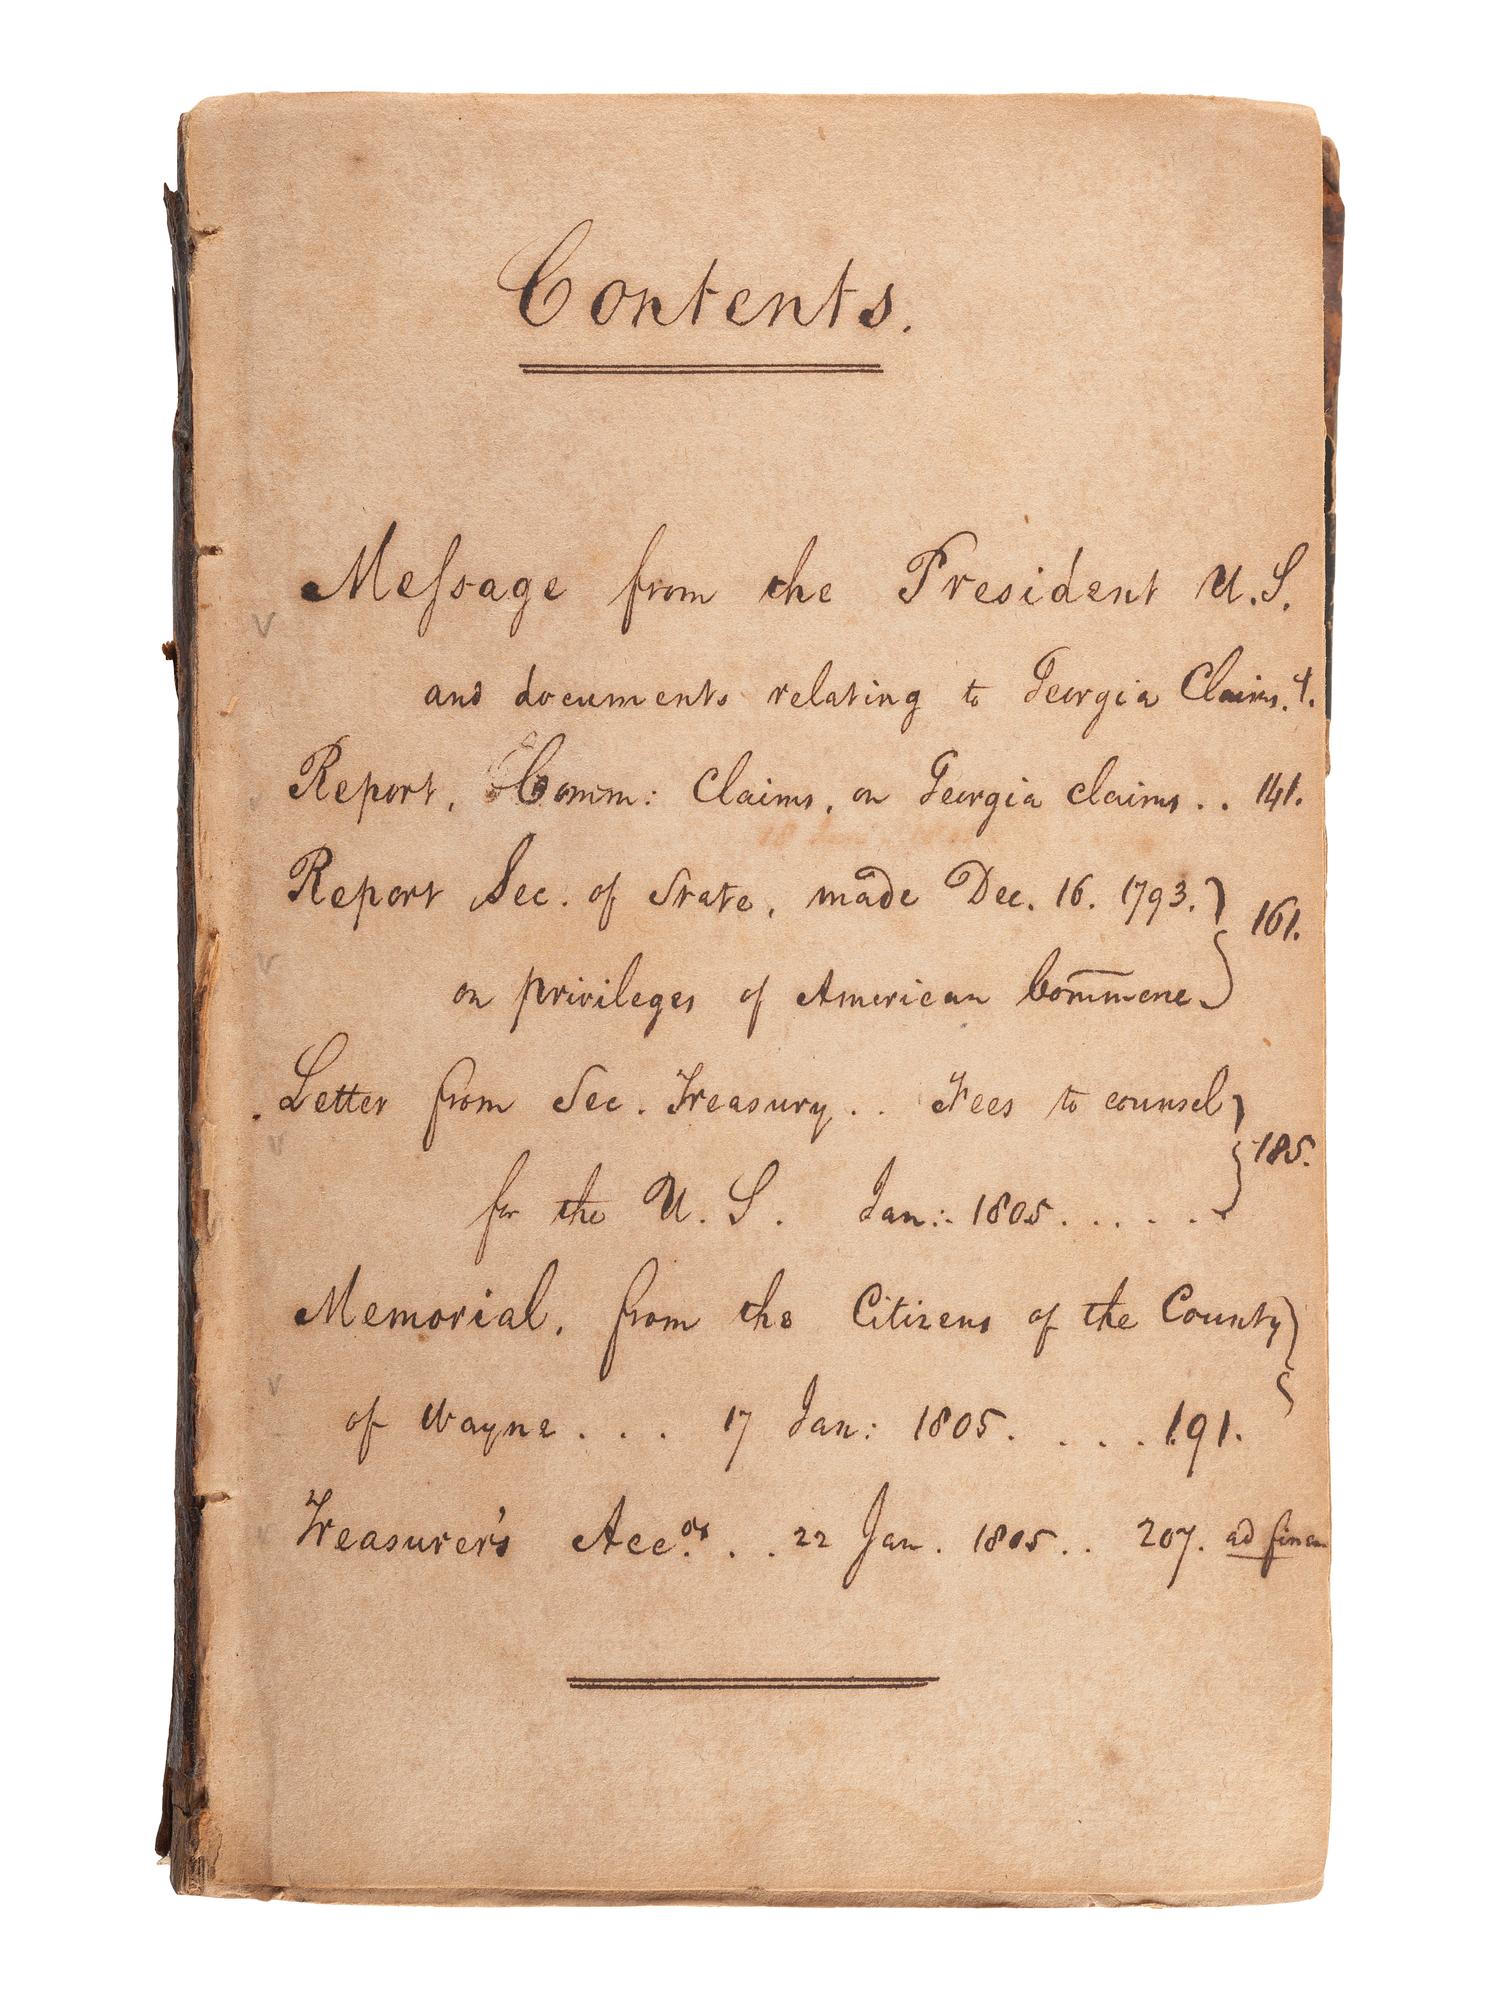 Contents.
Meſsage from the President U.S.
and documents relating to Georgia Claims.
Report, Comm: Claims, on Georgia claims . . 141.
Report Sec. of State, made Dec. 16. 1793. } 161.
on privileges of American Com̄merce.
Letter from Sec. Treasury . . Fees to counsel } 185.
for the U. S. Jan: 1805 . . . . .
Memorial, from the Citizens of the County }
of Wayne . . . 17 Jan: 1805. . . . . 191.
Treasurer's Acc.ots . . 22 Jan. 1805 . . 207. ad finem